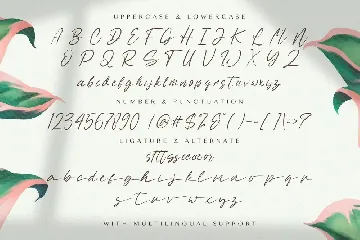 UPPERCASE & LOWERCASE
A B C D E F G H I J K L M N
O P Q R S T U V W X Y Z
abcdefghijklmnopqrstuvwxyz
NUMBER & PUNCTUATION
LIGATURE & ALTERNATE
a-b-c-d-e-f-g-h-i-j-k-l-m-n-o-p-q-r-
s-t-u-v-w-x-y-z
WITH MULTILINGUAL SUPPORT